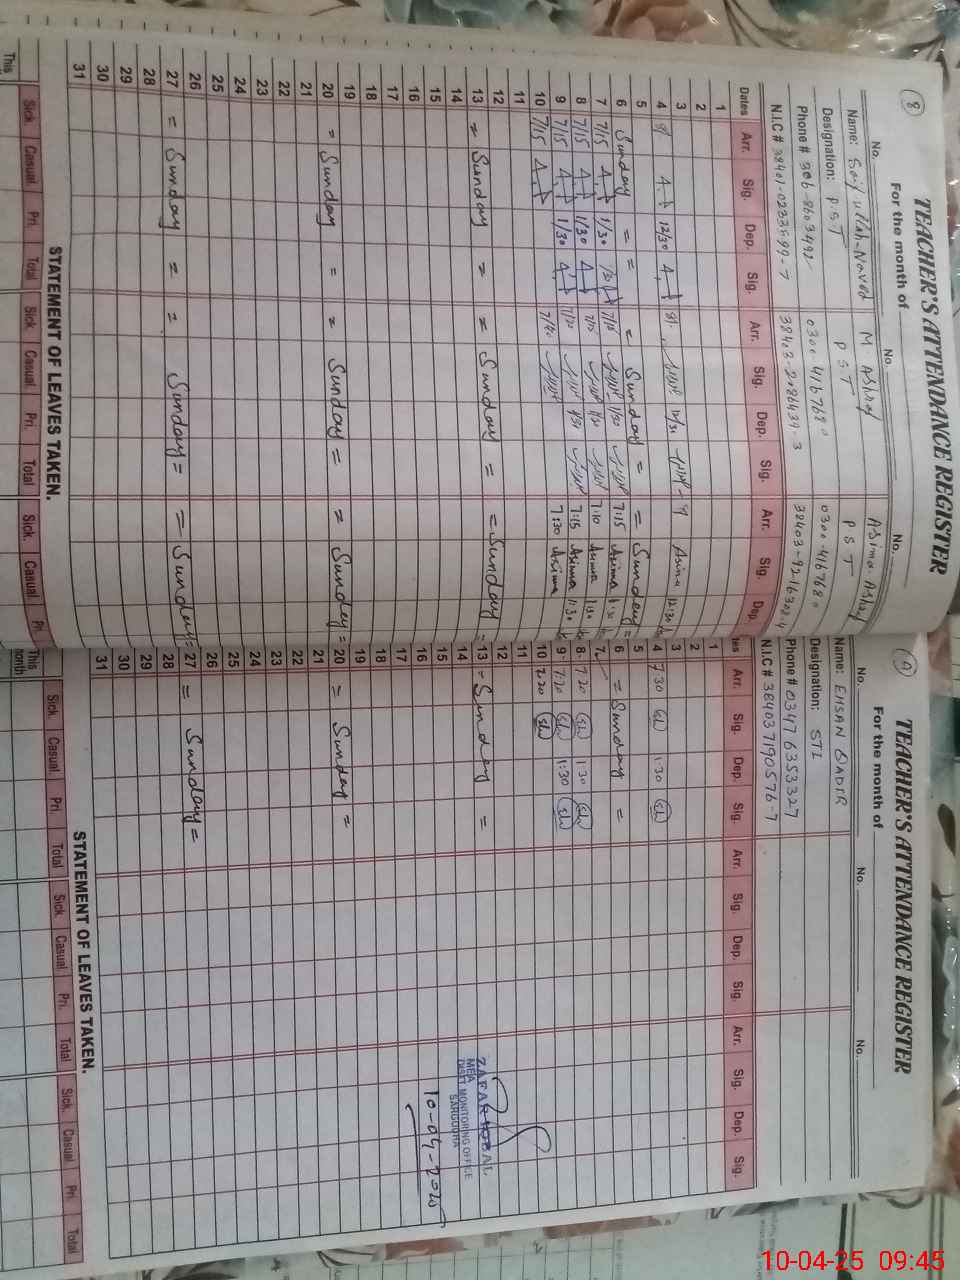 8
TEACHER'S ATTENDANCE REGISTER
For the month of
No. No. No.
Name: Saif ullah Naved M. Ashraf Asima Ashraf
Designation: P.S.T P S T P S T
Phone # 306-8603492 0300-4167680 0300-4167680
N.I.C # 38401-0233599-7 38403-2086439-3
Dates Arr. Sig. Dep. Sig. Arr. Sig. Dep. Sig. Arr. Sig. Dep.
1
2
3
4 12/30 12/30 Asima 12:30
5
6 Sunday = = = Sunday = = Sunday =
7 7/15 1/30 7/15 1/30 7:15 Asima 1:30
8 7/15 1/30 7/10 1/30 7:10 Asima 1:30
9 7/15 1/30 7/20 1/30 7:15 Asima 1:30
10 7/15 7/20 7:30 Asima
11
12
13 = Sunday = = Sunday = = Sunday =
14
15
16
17
18
19
20 = Sunday = = Sunday = = Sunday =
21
22
23
24
25
26
27 = Sunday = = Sunday = = Sunday =
28
29
30
31
STATEMENT OF LEAVES TAKEN.
Sick. Casual. Pri. Total Sick. Casual. Pri. Total Sick. Casual. Pri.
This
9
TEACHER'S ATTENDANCE REGISTER
For the month of
No. No. No.
Name: EHSAN QADIR
Designation: STI
Phone # 0347 6353327
N.I.C # 38403 7190576-7
tes Arr. Sig. Dep. Sig. Arr. Sig. Dep. Sig. Arr. Sig. Dep. Sig.
1
2
3
4 7 30 1 30
5
6 = Sunday =
7
8 7 20 1 30
9 7:20 1:30
10 7:20
11
12
13 = Sunday =
14
15
16
17
18
19
20 = Sunday =
21
22
23
24
25
26
27 = Sunday =
28
29
30
31
ZAFAR IQBAL
MEA
DISTT MONITORING OFFICE
SARGODHA
10-04-2025
STATEMENT OF LEAVES TAKEN.
Sick. Casual. Pri. Total Sick. Casual. Pri. Total Sick. Casual. Pri. Total
This
month
10-04-25 09:45